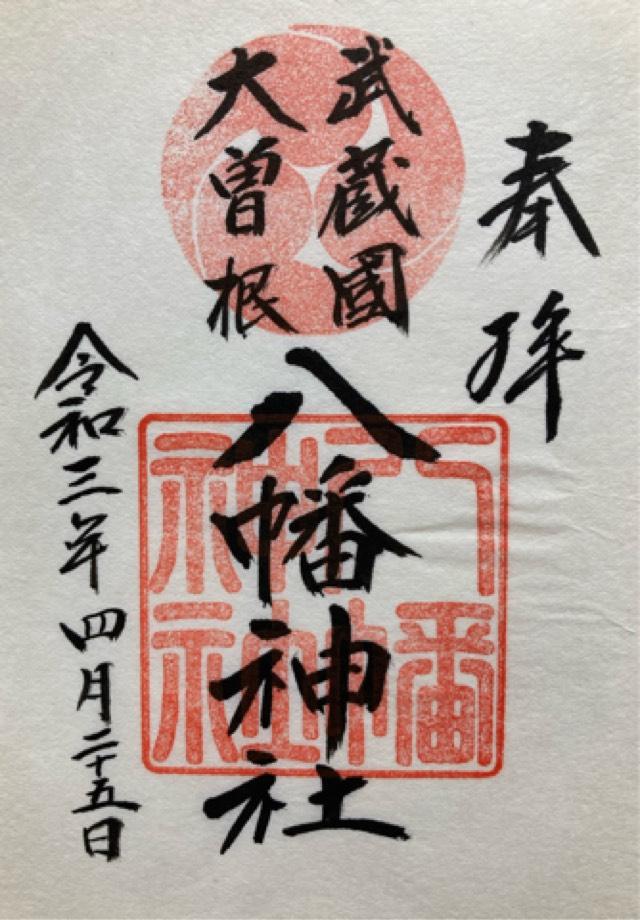 奉拝
武蔵國
大曽根
八幡神社
令和三年四月二十五日
八幡
神社